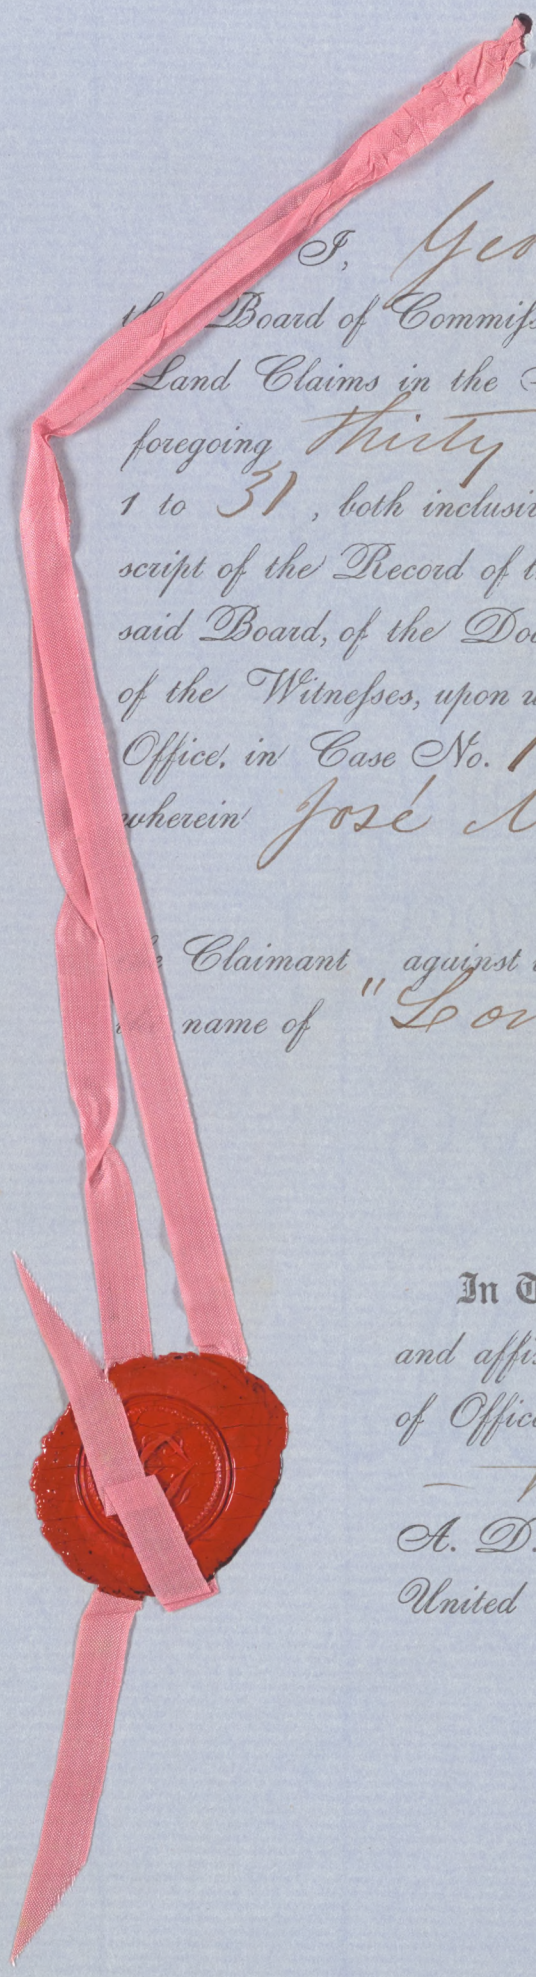 I, Geo
Board of Commiſs
Land Claims in the
foregoing Thirty
1 to 31, both inclusiv
script of the Record of t
said Board, of the Do
of the Witneſses, upon
Office, in Case No. 1
wherein José
the Claimant against
the name of "Lon
In T
and affi
of Offic
A. D.
United